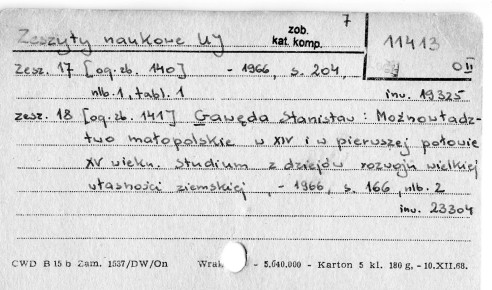 7
Zeszyty naukowe UJ
zob.
kat. komp.
11413
0 II
Zesz. 17 [og. zb. 140] - 1966, s. 204,
nlb. 1, tabl. 1 inw. 19325
zesz. 18 [og. zb. 141] Gawęda Stanisław: Możnowładz-
two małopolskie w XIV i w pierwszej połowie
XV wieku. Studium z dziejów rozwoju wielkiej
własności ziemskiej, - 1966, s. 166, nlb. 2
inw. 23304
CWD B 15 b Zam. 1537/DW/On - 5.040.000 - Karton 5 kl. 180 g, - 10.XII.68.